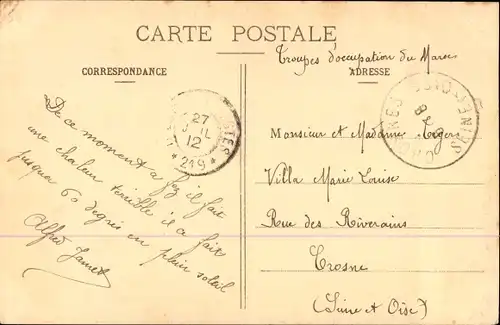 CARTE POSTALE
Troupes d'occupation du Maroc
CORRESPONDANCE
ADRESSE
De ce moment a Fez il fait
une chaleur terrible il a fait
jusqua 60 degrés en plein soleil
Alfred Jamet
27
12
* 219 *
SEINE-ET-OISE
Monsieur et Madame Rogers
Villa Marie Louise
Rue des Riverains
Crosne
(Seine et Oise)